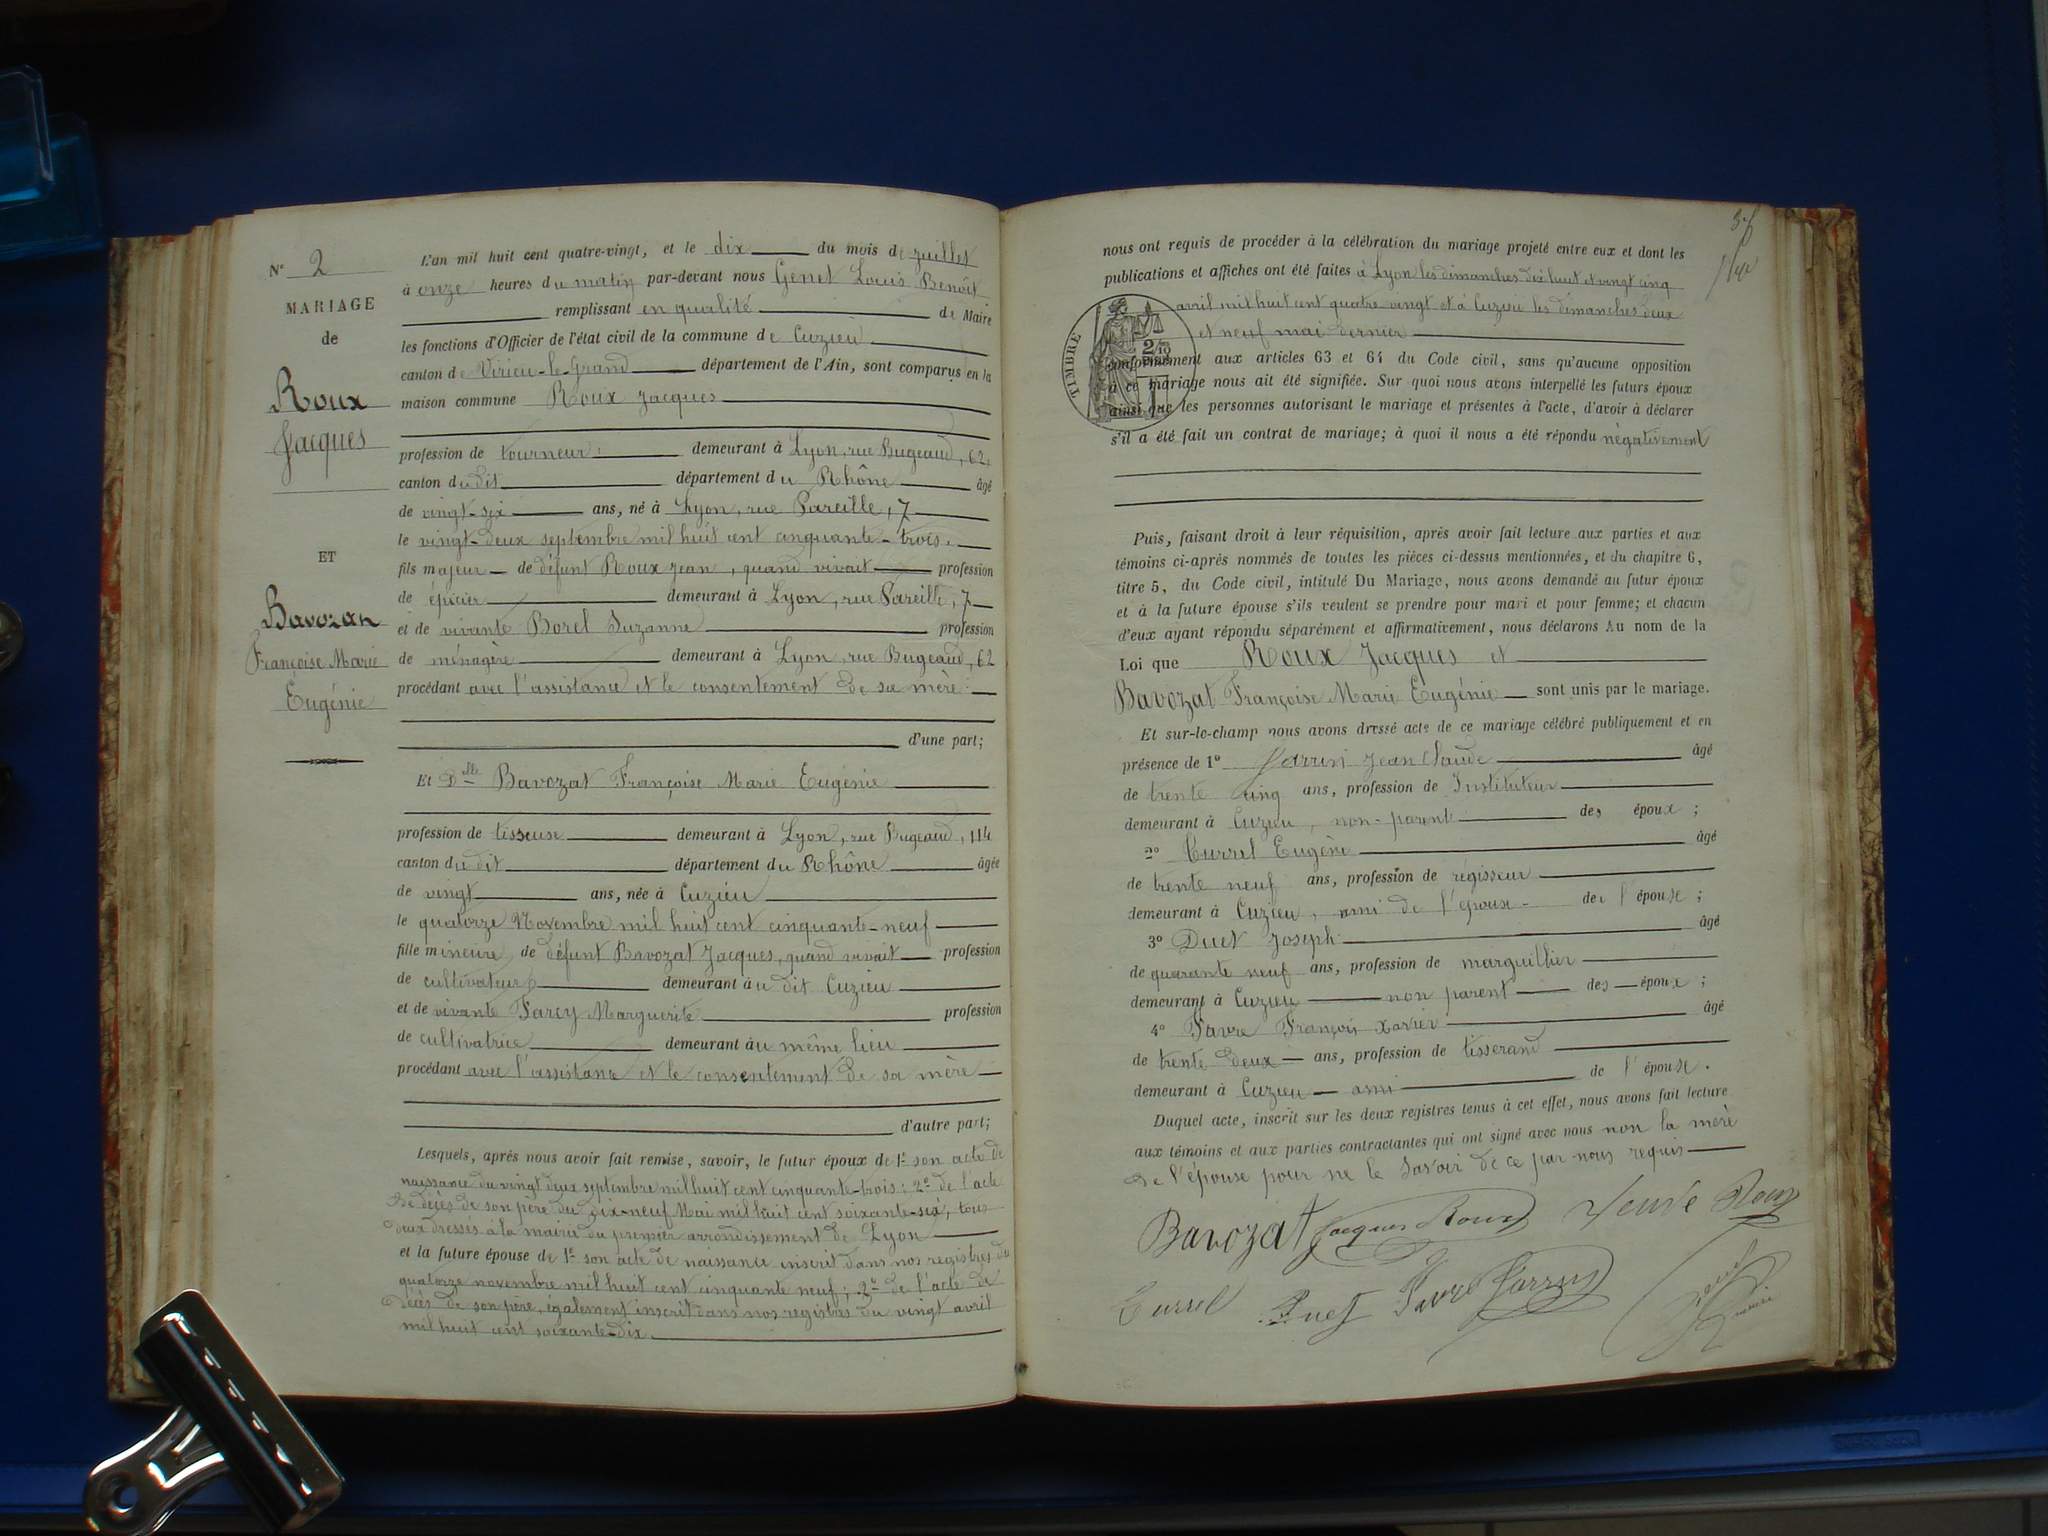 N° 2
MARIAGE
de
Roux
Jacques
ET
Bavozan
Françoise Marie
Eugénie
L'an mil huit cent quatre-vingt, et le dix du mois de juillet
à onze heures du matin par-devant nous Genet Louis Benoit
remplissant en qualité de Maire
les fonctions d'Officier de l'état civil de la commune de Cuzieu
canton de Virieu-le-Grand département de l'Ain, sont comparus en la
maison commune Roux Jacques
profession de tourneur demeurant à Lyon, rue Bugeaud, 62
canton dudit département du Rhône âgé
de vingt-six ans, né à Lyon, rue Pareille, 7
le vingt-deux septembre mil huit cent cinquante-trois.
fils majeur de défunt Roux Jean, quand vivait profession
de épicier demeurant à Lyon, rue Pareille, 7
et de vivante Borel Suzanne profession
de ménagère demeurant à Lyon, rue Bugeaud, 62
procédant avec l'assistance et le consentement de sa mère
d'une part;
Et Dlle Bavozat Françoise Marie Eugénie
profession de tisseuse demeurant à Lyon, rue Bugeaud, 114
canton dudit département du Rhône âgée
de vingt ans, née à Cuzieu
le quatorze Novembre mil huit cent cinquante-neuf
fille mineure de défunt Bavozat Jacques, quand vivait profession
de cultivateur demeurant audit Cuzieu
et de vivante Farcy Marguerite profession
de cultivatrice demeurant au même lieu
procédant avec l'assistance et le consentement de sa mère
d'autre part;
Lesquels, après nous avoir fait remise, savoir, le futur époux de 1° son acte de
naissance du vingt deux septembre mil huit cent cinquante-trois; 2° de l'acte
de décès de son père du dix-neuf Mai mil huit cent soixante-six, tous
deux dressés à la mairie du premier arrondissement de Lyon
et la future épouse de 1° son acte de naissance inscrit dans nos registres du
quatorze novembre mil huit cent cinquante neuf; 2° de l'acte de
décès de son père, également inscrit dans nos registres du vingt avril
mil huit cent soixante-dix.
nous ont requis de procéder à la célébration du mariage projeté entre eux et dont les
publications et affiches ont été faites à Lyon les dimanches dix huit et vingt cinq
avril mil huit cent quatre vingt et à Cuzieu les dimanches deux
et neuf mai dernier
TIMBRE
conformément aux articles 63 et 64 du Code civil, sans qu'aucune opposition
à ce mariage nous ait été signifiée. Sur quoi nous avons interpellé les futurs époux
ainsi que les personnes autorisant le mariage et présentes à l'acte, d'avoir à déclarer
s'il a été fait un contrat de mariage; à quoi il nous a été répondu négativement
Puis, faisant droit à leur réquisition, après avoir fait lecture aux parties et aux
témoins ci-après nommés de toutes les pièces ci-dessus mentionnées, et du chapitre 6,
titre 5, du Code civil, intitulé Du Mariage, nous avons demandé au futur époux
et à la future épouse s'ils veulent se prendre pour mari et pour femme; et chacun
d'eux ayant répondu séparément et affirmativement, nous déclarons Au nom de la
Loi que Roux Jacques et
Bavozat Françoise Marie Eugénie sont unis par le mariage.
Et sur-le-champ nous avons dressé acte de ce mariage célébré publiquement et en
présence de 1° Jean Claude âgé
de trente cinq ans, profession de Instituteur
demeurant à Cuzieu, non-parent des époux;
2° Currel Eugène âgé
de trente neuf ans, profession de régisseur
demeurant à Cuzieu, ami de l'épouse de l'épouse;
3° Duet Joseph âgé
de quarante neuf ans, profession de marguillier
demeurant à Cuzieu non parent des époux;
4° Favre François Xavier âgé
de trente deux ans, profession de tisserand
demeurant à Cuzieu ami de l'épouse.
Duquel acte, inscrit sur les deux registres tenus à cet effet, nous avons fait lecture
aux témoins et aux parties contractantes qui ont signé avec nous non la mère
de l'épouse pour ne le savoir de ce par nous requis
Bavozat Jacques Roux Veuve Roux
Currel Duet Favre